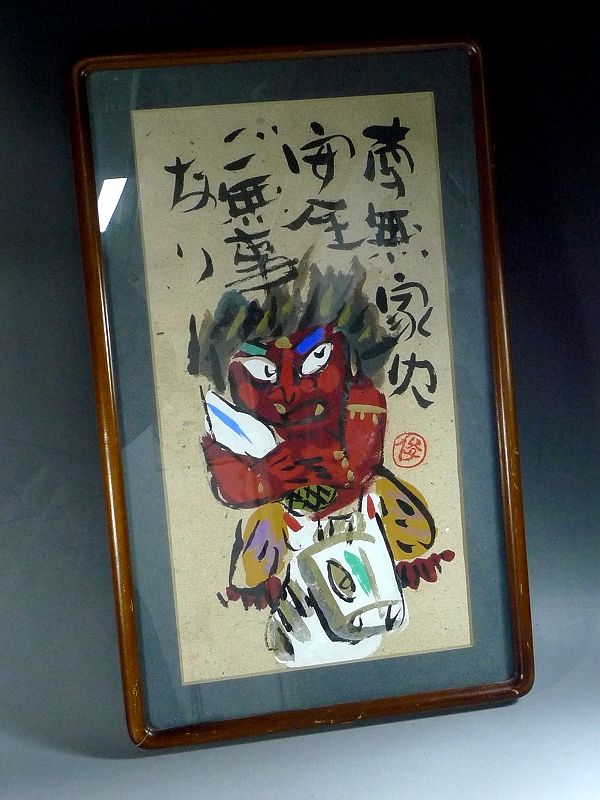 南無家内
安全
ご無事
なり
俊